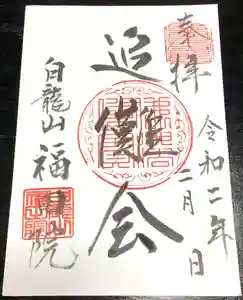 奉拝
令和二年
二月 日
追儺会
白龍山
福 院